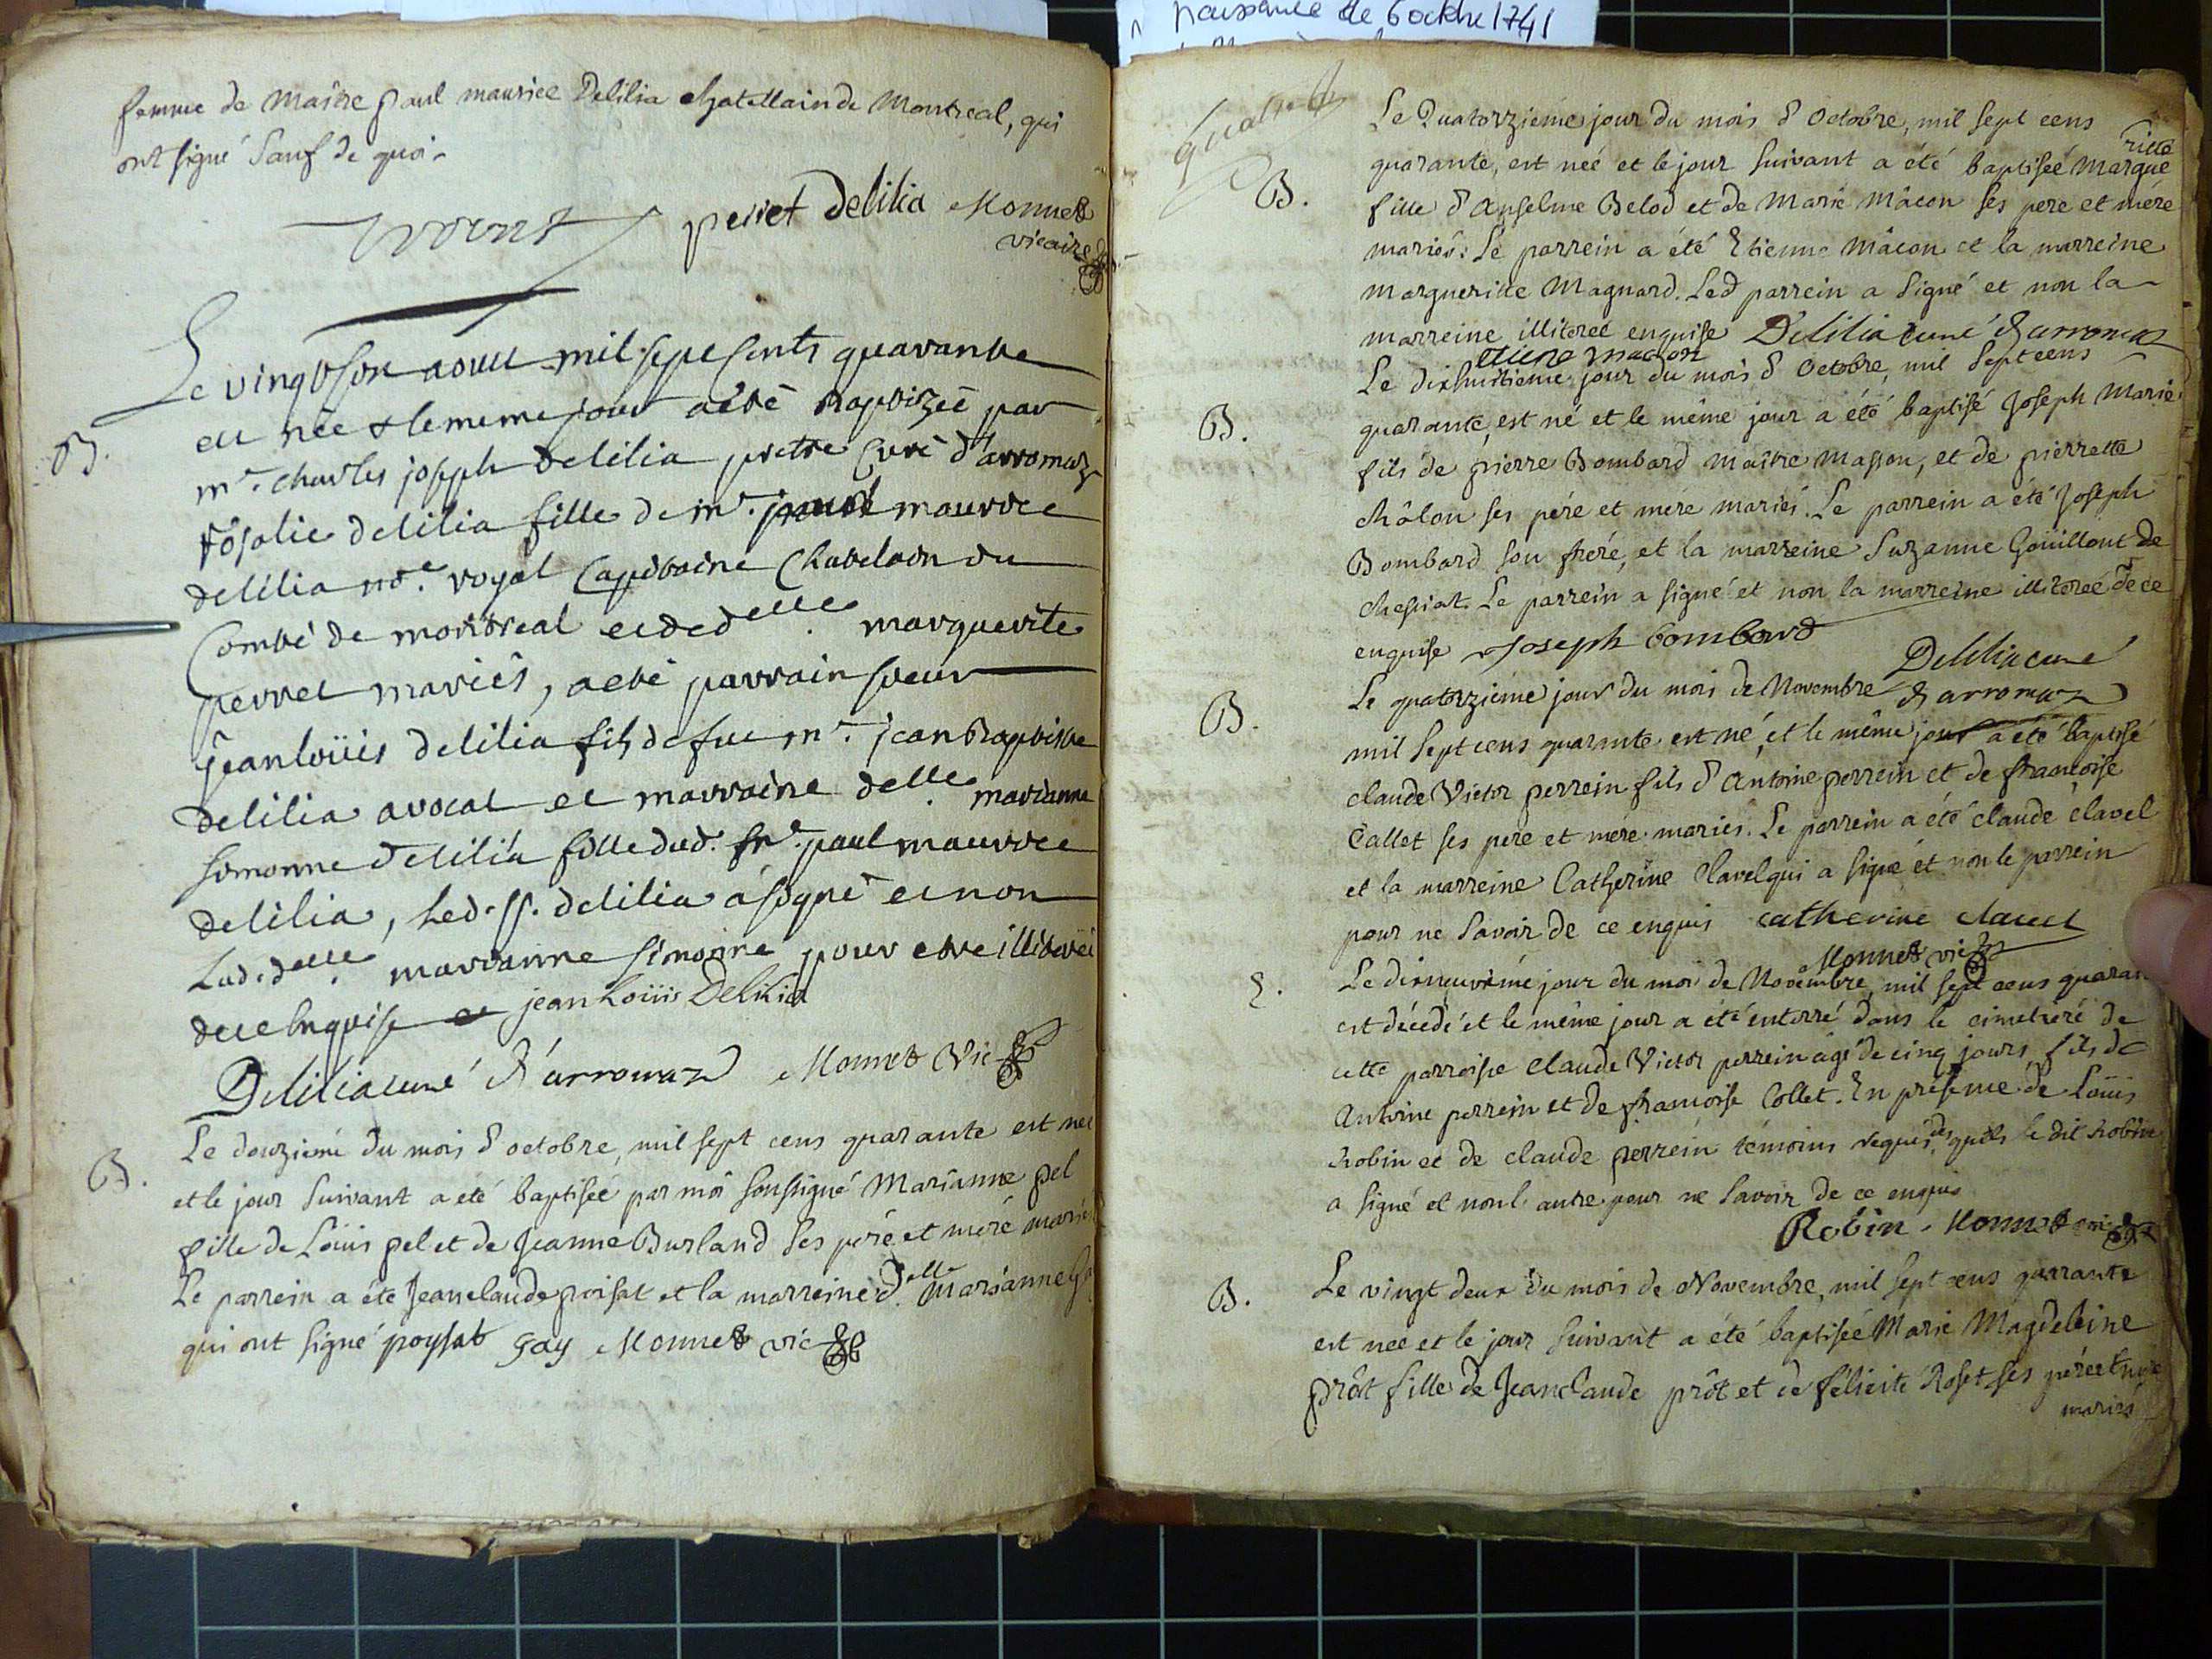 naissance de 6 octbre 1741
femme de Maître Paul maurice Delilia Chatellain de Montreal, qui
ont signé Sauf de quoi
perret Delilia Monnet
vicaire
Le vingt son aoust mil sept cents quarante
B.
est née & le meme jour a été Baptizée par
mr. charles joseph delilia pretre Curé d'arromaz
rosalie delilia fille de mr. paul maurice
delilia nore. royal Capitaine Chatelain du
Comté de montreal et de delle. marguerite
perret mariés, a eté parrain sieur
jean loüis delilia fils de feu mr. jean Baptiste
delilia avocat et marraine delle. marianne
simonne delilia fille dud. sr. paul maurice
delilia, led. sr. delilia a signé et non
lad. delle. marianne simonne pour etre illiterée
de ce enquise jean Loüis Delilia
Delilia curé d'arromaz Monnet vic
B.
Le douzième du mois d'octobre, mil sept cens quarante est née
et le jour suivant a eté baptisée par moi soussigné Marianne pel
fille de Loüis pel et de Jeanne Burland ses péré et meré mariés
Le parrein a été Jean claude poisat et la marreine d.elle Marianne
qui ont signé poysat gay Monnet vic
Le Quatorzième jour du mois d'Octobre, mil sept cens
quarante, est neé et le jour suivant a été baptisée Margue
ritte
B.
fille d'Anselme Belod et de Marie Mâcon ses pere et mére
mariés: Le parrein a été Etienne Mâcon et la marreine
Margueritte Magnard. Led parrein a signé et non la
marreine illiterée enquise Delilia curé d'arromaz
etiene macon
Le dixhuitieme jour du mois d'Octobre, mil sept cens
B.
quarante, est né et le même jour a été baptisé Joseph Marie
fils de pierre Bombard maître masson, et de pierrette
châlon ses péré et mere mariés. Le parrein a été Joseph
Bombard son freré, et la marreine Suzanne Goüillout de
chesiat. Le parrein a signé et non la marreine illiterée de ce
enquise Joseph bombard
Delilia curé
d'arromaz
Le quatorzieme jour du mois de Novembre
B.
mil sept cens quarante est né, et le même jour a été baptisé
claude Victor perrein fils d'Antoine perrein et de francoise
Callet ses pere et mére mariés. Le parrein a été claude clavel
et la marreine Catherine Clavel qui a signé et non le parrein
pour ne savoir de ce enquis catherine clavel
Monnet vic
Le dixneuvième jour du moi de Novembre, mil sept cens quaran
est décedé et le même jour a été enterré dans le cimetieré de
cette parroisse claude Victor perrein âgé de cinq jours fils de
Antoine perrein et de francoise Collet. En présence de Loüis
Robin et de claude perrein témoins requis, desquels le dit Robin
a signé et non l'autre pour ne savoir de ce enquis
Robin Monnet vic
B.
Le vingt deux du mois de Novembre, mil sept cens quarante
est neé et le jour suivant a été baptisée Marie Magdeleine
prôt fille de Jean claude prôt et de félicité Roset ses pére et mére
mariés